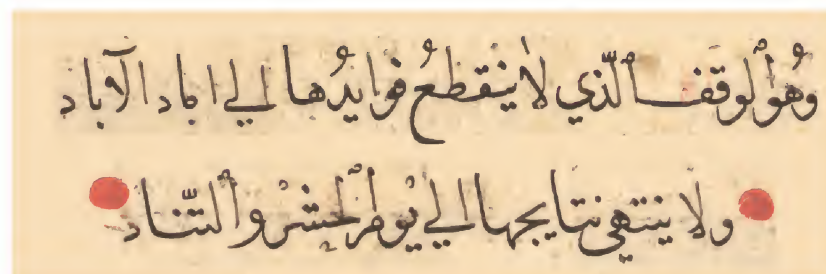 وهُوَ ٱلوقف ٱلّذي لا ينقطعُ فوايدُها الي اباد الآباد
ولا ينتهي نتايجها الي يوم الحشر والتّناد